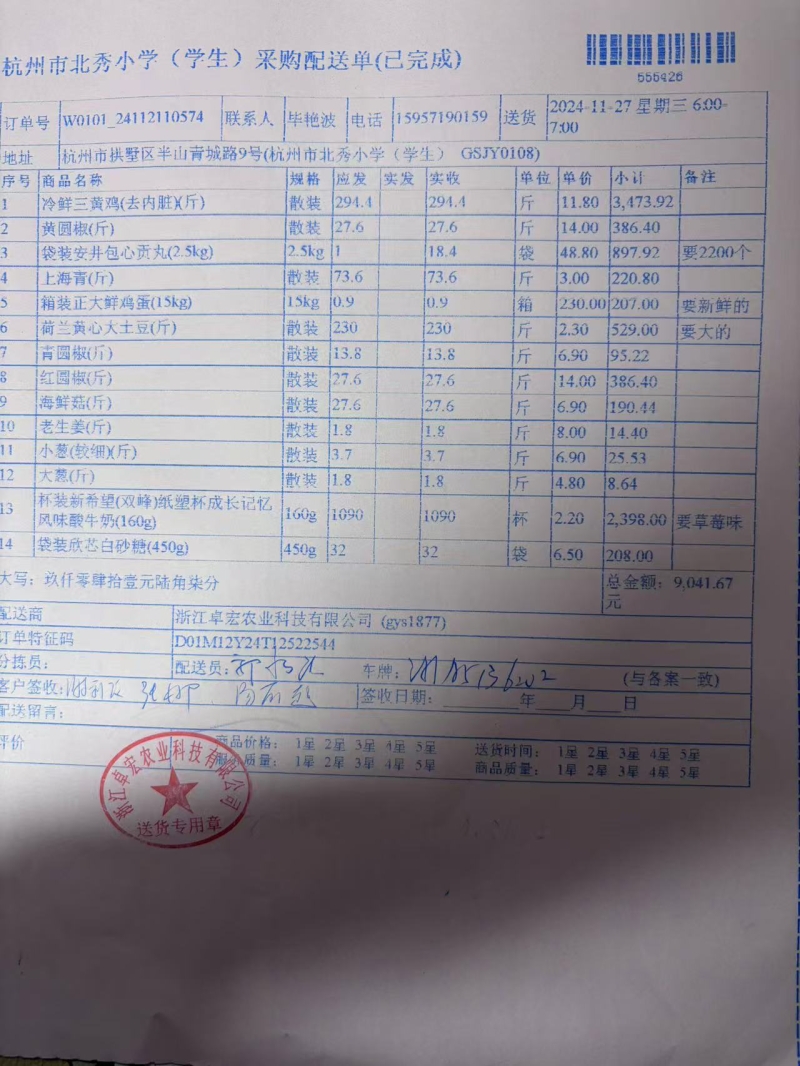 杭州市北秀小学（学生）采购配送单(已完成)
556426
订单号 W0101_24112110574 联系人 毕艳波 电话 15957190159 送货 2024-11-27 星期三 6:00-7:00
地址 杭州市拱墅区半山青城路9号(杭州市北秀小学（学生） GSJY0108)
序号 商品名称 规格 应发 实发 实收 单位 单价 小计 备注
1 冷鲜三黄鸡(去内脏)(斤) 散装 294.4 294.4 斤 11.80 3,473.92
2 黄圆椒(斤) 散装 27.6 27.6 斤 14.00 386.40
3 袋装安井包心贡丸(2.5kg) 2.5kg 1 18.4 袋 48.80 897.92 要2200个
4 上海青(斤) 散装 73.6 73.6 斤 3.00 220.80
5 箱装正大鲜鸡蛋(15kg) 15kg 0.9 0.9 箱 230.00 207.00 要新鲜的
6 荷兰黄心大土豆(斤) 散装 230 230 斤 2.30 529.00 要大的
7 青圆椒(斤) 散装 13.8 13.8 斤 6.90 95.22
8 红圆椒(斤) 散装 27.6 27.6 斤 14.00 386.40
9 海鲜菇(斤) 散装 27.6 27.6 斤 6.90 190.44
10 老生姜(斤) 散装 1.8 1.8 斤 8.00 14.40
11 小葱(较细)(斤) 散装 3.7 3.7 斤 6.90 25.53
12 大葱(斤) 散装 1.8 1.8 斤 4.80 8.64
13 杯装新希望(双峰)纸塑杯成长记忆风味酸牛奶(160g) 160g 1090 1090 杯 2.20 2,398.00 要草莓味
14 袋装欣芯白砂糖(450g) 450g 32 32 袋 6.50 208.00
大写：玖仟零肆拾壹元陆角柒分 总金额：9,041.67元
配送商 浙江卓宏农业科技有限公司 (gys1877)
订单特征码 D01M12Y24T12522544
分拣员： 配送员： 车牌： (与备案一致)
客户签收： 签收日期：____年____月____日
配送留言：
评价 商品价格： 1星 2星 3星 4星 5星 送货时间： 1星 2星 3星 4星 5星
服务质量： 1星 2星 3星 4星 5星 商品质量： 1星 2星 3星 4星 5星
浙江卓宏农业科技有限公司
送货专用章